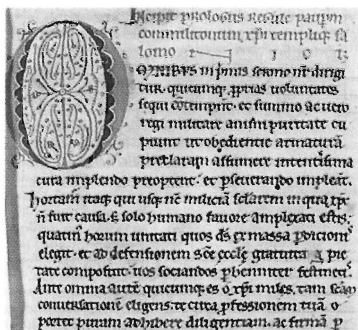 Incipit prologus Regule pauꝑum
commilitonum xp̄i templiq; sa
lomo n i c i
OMNIBUS in pͥmis sermo nr̄ dirigi
tur. quicumq; ꝓprias voluntates
sequi contempnt. et summo ac vero
regi militare animi puritate cu
piunt. ut obedientie armaturā
preclaram assumere intentissima
cura implendo preoptent. et ꝑseuerando impleāt.
Hortam̄ itaq; qui usq; nc̄ miliciā secularem in qua xp̄c
n̄ fuit causa. s; solo humano fauore amplexati estis.
quatin̄ horum unitati quos ds̄ ex massa ꝑdicioni
elegit. et ad defensionem scē ecclē gratuita pie
tate composuit. uos sociandos ꝑhenniter festinetis.
Ante omnia autē quicumq; es o xp̄i miles. tam scām
conuersationē eligens. te circa ꝓfessionem tuā o
portet puram adhibere diligentiam. ac firmā ꝑ